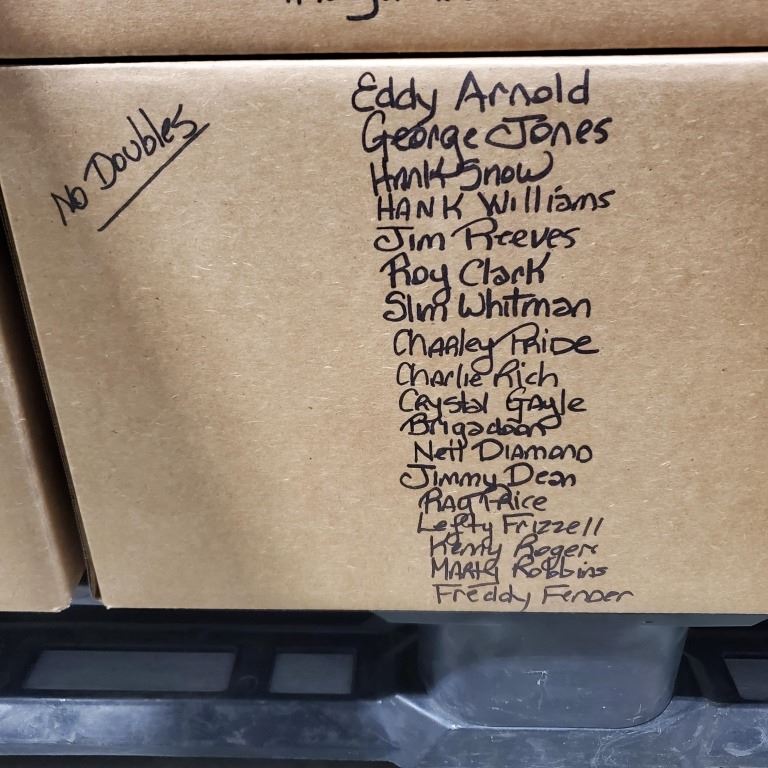 No Doubles
Eddy Arnold
George Jones
Hank Snow
HANK Williams
Jim Reeves
Roy Clark
Slim Whitman
Charley Pride
Charlie Rich
Crystal Gayle
Brigadoon
Neil Diamond
Jimmy Dean
Ray Price
Lefty Frizzell
Kenny Rogers
Marty Robbins
Freddy Fender